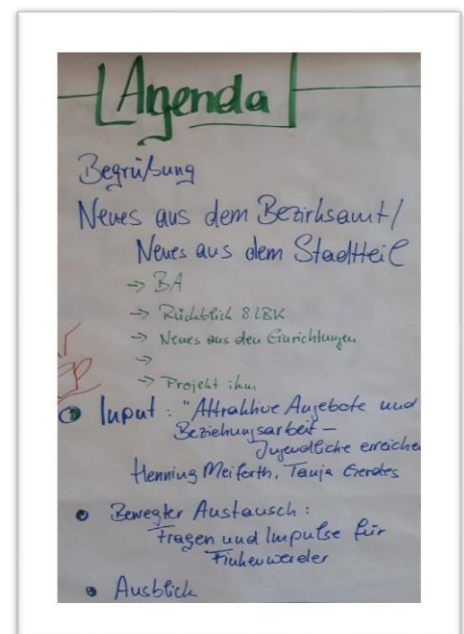 Agenda
Begrüßung
Neues aus dem Bezirksamt/
Neues aus dem Stadtteil
→ BA
→ Rückblick 8. LBK
→ Neues aus den Einrichtungen
→
→ Projekt ihm
• Input: "Attraktive Angebote und
Beziehungsarbeit –
Jugendliche erreiche
Henning Meiforth, Tanja Gerdes
• Bewegter Austausch:
Fragen und Impulse für
Finkenwerder
• Ausblick